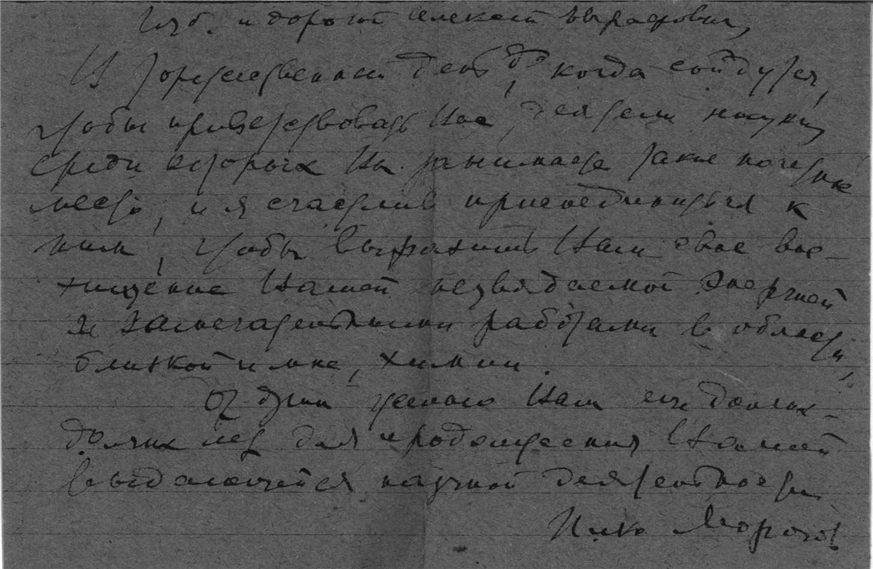 Глуб. и дорогой Алексей Евграфович,
В торжественный день, когда сойдутся,
чтобы приветствовать Вас, деятели науки,
среди которых Вы занимаете такое почетное
место, и я счастлив присоединиться к
ним, чтобы выразить Вам свое вос-
хищение Вашей неувядаемой энергией
и замечательными работами в области,
близкой и мне, химии.
От души желаю Вам еще долгих-
долгих лет для продолжения Вашей
выдающейся научной деятельности
Ник. Морозов